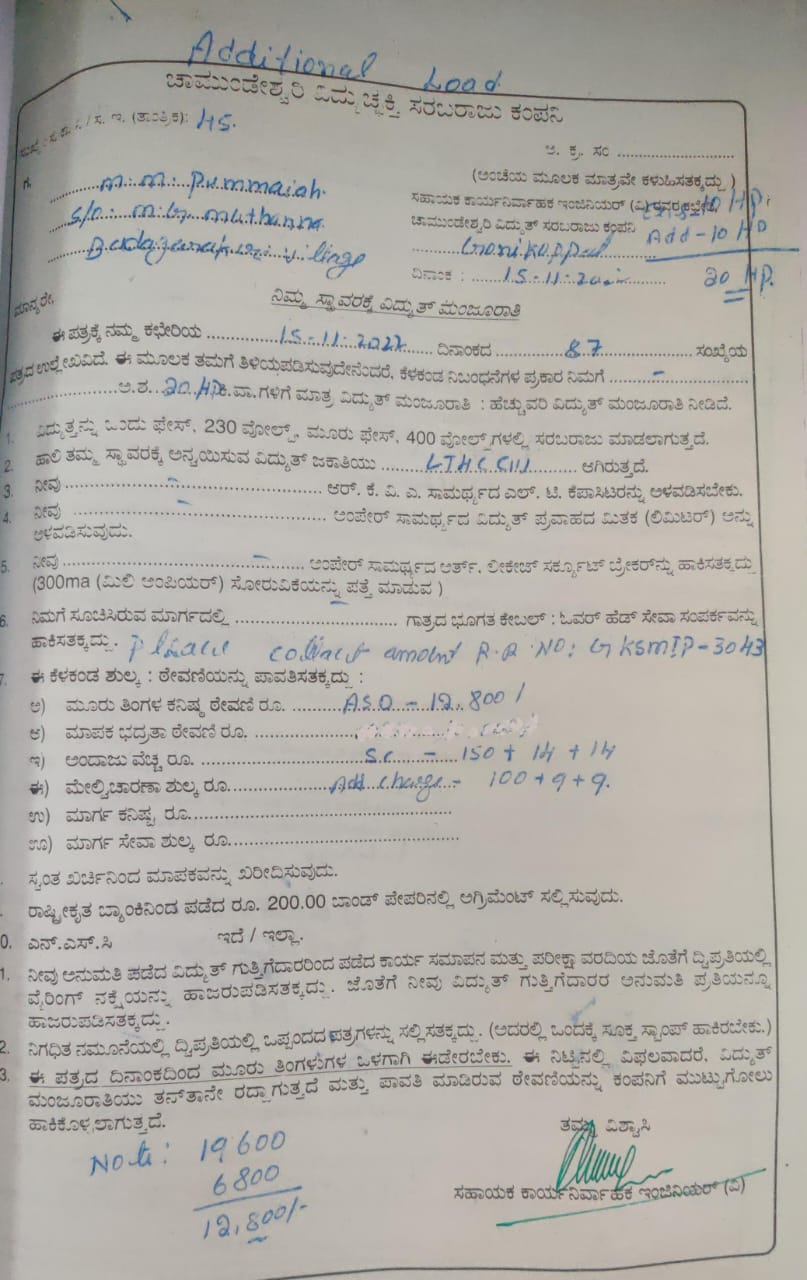 Additional Load
ಚಾಮುಂಡೇಶ್ವರಿ ವಿದ್ಯುಚ್ಛಕ್ತಿ ಸರಬರಾಜು ಕಂಪನಿ
ಸ. ಇ. (ತಾಂತ್ರಿಕ): 45.
ಅ. ಕ್ರ. ಸಂ ..............................
ಗೆ, (ಅಂಚೆಯ ಮೂಲಕ ಮಾತ್ರವೇ ಕಳುಹಿಸತಕ್ಕದ್ದು )
M. M. Pummaiah. ಸಹಾಯಕ ಕಾರ್ಯನಿರ್ವಾಹಕ ಇಂಜಿನಿಯರ್ (ವಿ) ರವರ ಕಛೇರಿ, 10 HP.
S/o. M. G. Muthanna ಚಾಮುಂಡೇಶ್ವರಿ ವಿದ್ಯುತ್ ಸರಬರಾಜು ಕಂಪನಿ Add - 10 HP
Gonikoppal
ದಿನಾಂಕ : 15-11-2022 20 HP.
ಮಾನ್ಯರೇ,
ನಿಮ್ಮ ಸ್ಥಾವರಕ್ಕೆ ವಿದ್ಯುತ್ ಮಂಜೂರಾತಿ
ಈ ಪತ್ರಕ್ಕೆ ನಮ್ಮ ಕಛೇರಿಯ 15-11-2022 ದಿನಾಂಕದ 87 ಸಂಖ್ಯೆಯ
ಪತ್ರದ ಉಲ್ಲೇಖವಿದೆ. ಈ ಮೂಲಕ ತಮಗೆ ತಿಳಿಯಪಡಿಸುವುದೇನೆಂದರೆ, ಕೆಳಕಂಡ ನಿಬಂಧನೆಗಳ ಪ್ರಕಾರ ನಿಮಗೆ - 
ಅ.ಶ. 20 HP ವಾ.ಗಳಿಗೆ ಮಾತ್ರ ವಿದ್ಯುತ್ ಮಂಜೂರಾತಿ : ಹೆಚ್ಚುವರಿ ವಿದ್ಯುತ್ ಮಂಜೂರಾತಿ ನೀಡಿದೆ.
1. ವಿದ್ಯುತ್ತನ್ನು ಒಂದು ಫೇಸ್, 230 ವೋಲ್ಟ್, ಮೂರು ಫೇಸ್, 400 ವೋಲ್ಟ್‌ಗಳಲ್ಲಿ ಸರಬರಾಜು ಮಾಡಲಾಗುತ್ತದೆ.
2. ಹಾಲಿ ತಮ್ಮ ಸ್ಥಾವರಕ್ಕೆ ಅನ್ವಯಿಸುವ ವಿದ್ಯುತ್ ಜಕಾತಿಯು ಆಗಿರುತ್ತದೆ.
3. ನೀವು - ಆರ್. ಕೆ. ವಿ. ಎ. ಸಾಮರ್ಥ್ಯದ ಎಲ್. ಟಿ. ಕೆಪಾಸಿಟರನ್ನು ಅಳವಡಿಸಬೇಕು.
4. ನೀವು - ಅಂಪೇರ್ ಸಾಮರ್ಥ್ಯದ ವಿದ್ಯುತ್ ಪ್ರವಾಹದ ಮಿತಕ (ಲಿಮಿಟರ್) ಅನ್ನು
ಅಳವಡಿಸುವುದು.
5. ನೀವು - ಅಂಪೇರ್ ಸಾಮರ್ಥ್ಯದ ಅರ್ತ್. ಲೀಕೇಜ್ ಸರ್ಕ್ಯೂಟ್ ಬ್ರೇಕರ್‌ನ್ನು ಹಾಕಿಸತಕ್ಕದ್ದು
(300ma (ಮಿಲಿ ಅಂಪಿಯರ್) ಸೋರುವಿಕೆಯನ್ನು ಪತ್ತೆ ಮಾಡುವ )
6. ನಿಮಗೆ ಸೂಚಿಸಿರುವ ಮಾರ್ಗದಲ್ಲಿ - ಗಾತ್ರದ ಭೂಗತ ಕೇಬಲ್ : ಓವರ್ ಹೆಡ್ ಸೇವಾ ಸಂಪರ್ಕವನ್ನು
ಹಾಕಿಸತಕ್ಕದ್ದು. Please collect amount R.R NO: GKSMIP-3043
7. ಈ ಕೆಳಕಂಡ ಶುಲ್ಕ : ಠೇವಣಿಯನ್ನು ಪಾವತಿಸತಕ್ಕದ್ದು :
ಅ) ಮೂರು ತಿಂಗಳ ಕನಿಷ್ಠ ಠೇವಣಿ ರೂ. ASD - 12,800/
ಆ) ಮಾಪಕ ಭದ್ರತಾ ಠೇವಣಿ ರೂ.
ಇ) ಅಂದಾಜು ವೆಚ್ಚ ರೂ. S.C - 150 + 14 + 14
ಈ) ಮೇಲ್ವಿಚಾರಣಾ ಶುಲ್ಕ ರೂ. Add charge - 100 + 9 + 9.
ಉ) ಮಾರ್ಗ ಕನಿಷ್ಟ ರೂ.
ಊ) ಮಾರ್ಗ ಸೇವಾ ಶುಲ್ಕ ರೂ.
. ಸ್ವಂತ ಖರ್ಚಿನಿಂದ ಮಾಪಕವನ್ನು ಖರೀದಿಸುವುದು.
. ರಾಷ್ಟ್ರೀಕೃತ ಬ್ಯಾಂಕಿನಿಂದ ಪಡೆದ ರೂ. 200.00 ಬಾಂಡ್ ಪೇಪರಿನಲ್ಲಿ ಅಗ್ರಿಮೆಂಟ್ ಸಲ್ಲಿಸುವುದು.
0. ಎನ್.ಎಸ್.ಸಿ ಇದೆ / ಇಲ್ಲಾ.
1. ನೀವು ಅನುಮತಿ ಪಡೆದ ವಿದ್ಯುತ್ ಗುತ್ತಿಗೆದಾರರಿಂದ ಪಡೆದ ಕಾರ್ಯ ಸಮಾಪನ ಮತ್ತು ಪರೀಕ್ಷಾ ವರದಿಯ ಜೊತೆಗೆ ದ್ವಿಪ್ರತಿಯಲ್ಲಿ
ವೈರಿಂಗ್ ನಕ್ಷೆಯನ್ನು ಹಾಜರುಪಡಿಸತಕ್ಕದ್ದು. ಜೊತೆಗೆ ನೀವು ವಿದ್ಯುತ್ ಗುತ್ತಿಗೆದಾರರ ಅನುಮತಿ ಪ್ರತಿಯನ್ನೂ
ಹಾಜರುಪಡಿಸತಕ್ಕದ್ದು.
2. ನಿಗಧಿತ ನಮೂನೆಯಲ್ಲಿ ದ್ವಿಪ್ರತಿಯಲ್ಲಿ ಒಪ್ಪಂದದ ಪತ್ರಗಳನ್ನು ಸಲ್ಲಿಸತಕ್ಕದ್ದು. (ಅದರಲ್ಲಿ ಒಂದಕ್ಕೆ ಸೂಕ್ತ ಸ್ಟಾಂಪ್ ಹಾಕಿರಬೇಕು.)
3. ಈ ಪತ್ರದ ದಿನಾಂಕದಿಂದ ಮೂರು ತಿಂಗಳುಗಳ ಒಳಗಾಗಿ ಈಡೇರಬೇಕು. ಈ ನಿಟ್ಟಿನಲ್ಲಿ ವಿಫಲವಾದರೆ, ವಿದ್ಯುತ್
ಮಂಜೂರಾತಿಯು ತನ್‌ತಾನೇ ರದ್ದಾಗುತ್ತದೆ ಮತ್ತು ಪಾವತಿ ಮಾಡಿರುವ ಠೇವಣಿಯನ್ನು ಕಂಪನಿಗೆ ಮುಟ್ಟುಗೋಲು
ಹಾಕಿಕೊಳ್ಳಲಾಗುತ್ತದೆ.
ತಮ್ಮ ವಿಶ್ವಾಸಿ
Note: 19600
6800
12,800/-
ಸಹಾಯಕ ಕಾರ್ಯನಿರ್ವಾಹಕ ಇಂಜಿನಿಯರ್ (ವಿ)